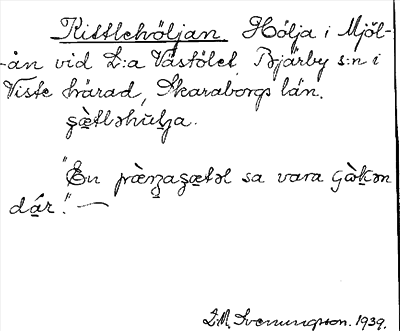 Kittlehöljan. Hölja i Mjöl-
-ån vid L:a Västölet, Bjärby s:n i
Viste härad, Skaraborgs län.
ʂæ̀tləhùlja.
"En pæ̀ŋgaʂætəl sa vara gàḱən
dár." —
L.M. Svenungsson. 1939.